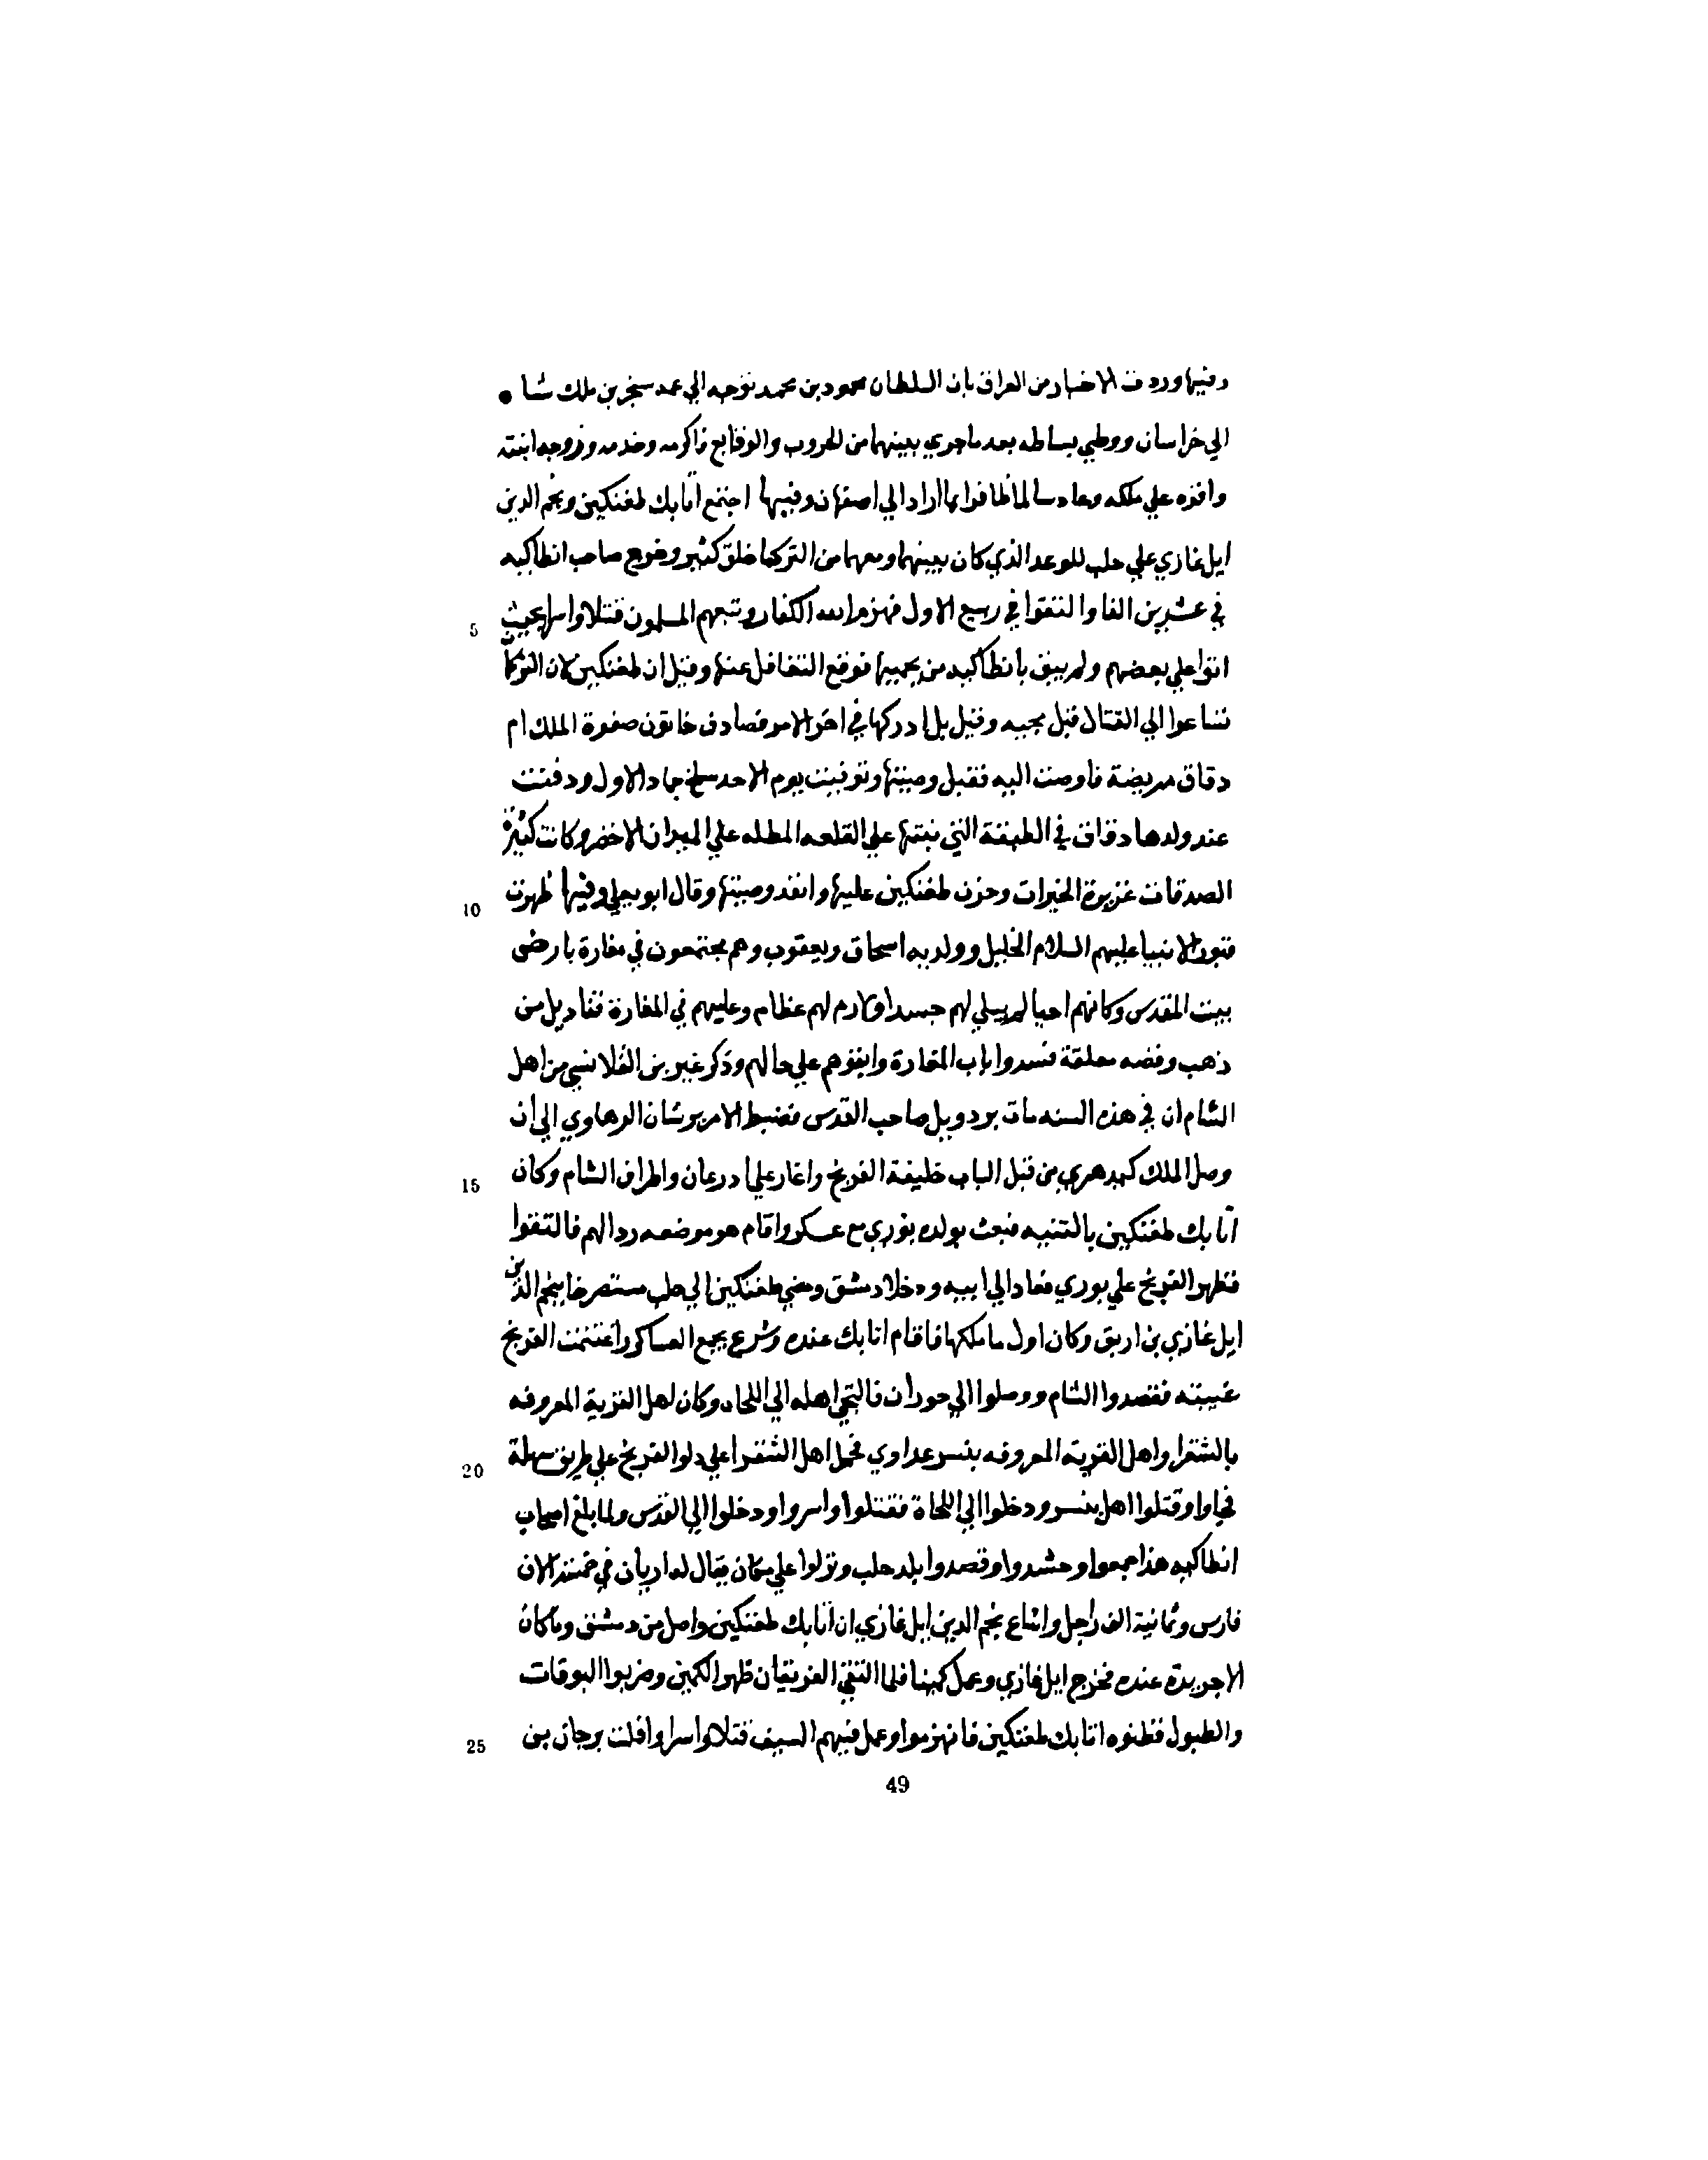 وفيها وردت الاخبار من العراق بان السلطان محمود بن محمد توجه الي عمه سنجر بن ملك شاه
الي خراسان ووطي بساطه بعد ماجري بينهما من الحروب والوقايع فاكرمه وخدمه وزوجه ابنته
واقره علي ملكه وعاد سالما ظافرا بما اراد الي اصفهان وفيها اجتمع اتابك طغتكين ونجم الدين
ايل غازي علي حلب للوعد الذي كان بينهما ومعهما من التركما خلق كثير وخرج صاحب انطاكيه
في عشرين الفا والتقوا في ربيع الاول فهزم الله الكفار وتبعهم المسلمون قتلا واسرا بحيث
5
اتوا علي بعضهم ولم يبق بانطاكيه من يحميها فوقع التغافل عنها وقيل ان طغتكين لان التركمان
تساعوا الي القتال قبل مجيه وقيل بل ادركها في اخر الامر فصادف خاتون صفوة الملك ام
دقاق مريضة فاوصت اليه فقبل وصيتها وتوفيت يوم الاحد سلخ جماد الاول ودفنت
عند ولدها دقاق في الطبقة التي بنتها علي القلعه المطله علي الميدان الاخضر وكانت كثيرة
الصدقات غزيرة الخيرات وحزن طغتكين عليها وانفذ وصيتها وقال ابو يعلي وفيها ظهرت
10
قبور الانبيا عليهم السلام الخليل وولديه اسحاق ويعقوب وهم مجتمعون في مغارة بارض
بيت المقدس وكانهم احيا لم يبلي لهم جسد ولا رم لهم عظام وعليهم في المغارة قناديل من
ذهب وفضه معلقة فسدوا باب المغارة وابقوهم علي حالهم وذكر غير بن القلانسي من اهل
الشام ان في هذه السنه مات بردويل صاحب القدس فضبط الامر بوشان الرهاوي الي ان
وصل الملك كندهري من قبل الباب خليفة الفرنج واغار علي ادرعان واطراف الشام وكان
15
اتابك طغتكين بالتنبيه فبعث بولده بوري مع عسكر واقام هو موضعه ردا لهم فالتقوا
فظهر الفرنج علي بوري فعاد الي ابيه ودخلا دمشق ومضي طغتكين الي حلب مستصرخا بنجم الدين
ايل غازي بن ارتق وكان اول ما ملكها فاقام اتابك عنده وشرع بجمع العساكر واغتنمت الفرنج
غيبته فقصدوا الشام ووصلوا الي حوران فالتجي اهله الي اللجاه وكان لهل القرية المعروفه
بالشقرا واهل القرية المعروفه ببسر عداوي فحمل اهل الشقرا علي دلوا الفرنج علي طريق سهلة
20
فجاوا وقتلوا اهل بسر ودخلوا الي اللجاة فقتلوا واسروا ودخلوا الي القدس ولما بلغ اصحاب
انطاكيه هذا جمعوا وحشدوا وقصدوا بلد حلب ونزلوا علي مكان يقال له ارتان في خمسة الان
فارس وثمانية الف راجل واشاع نجم الدين ايل غازي ان اتابك طغتكين واصل من دمشق وما كان
الاجريدة عنده فخرج ايل غازي وعمل كمينا فلما التقي الفريقان ظهر الكمين وضربوا البوقات
والطبول فظنوه اتابك طغتكين فانهزموا وعمل فيهم السيف قتلا واسرا وافلت برجان بن
25
49